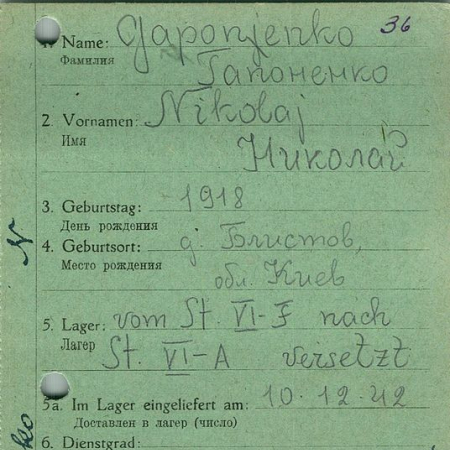 36
1. Name: Gaponjenko
Фамилия Гапоненко
2. Vornamen: Nikolaj
Имя
Николай
3. Geburtstag: 1918
День рождения
4. Geburtsort: д. Блистов,
Место рождения
обл. Киев
5. Lager: vom St. VI-F nach
Лагер St. VI-A versetzt
5a. Im Lager eingeliefert am: 10.12.42
Доставлен в лагер (число)
6. Dienstgrad:
N
ko